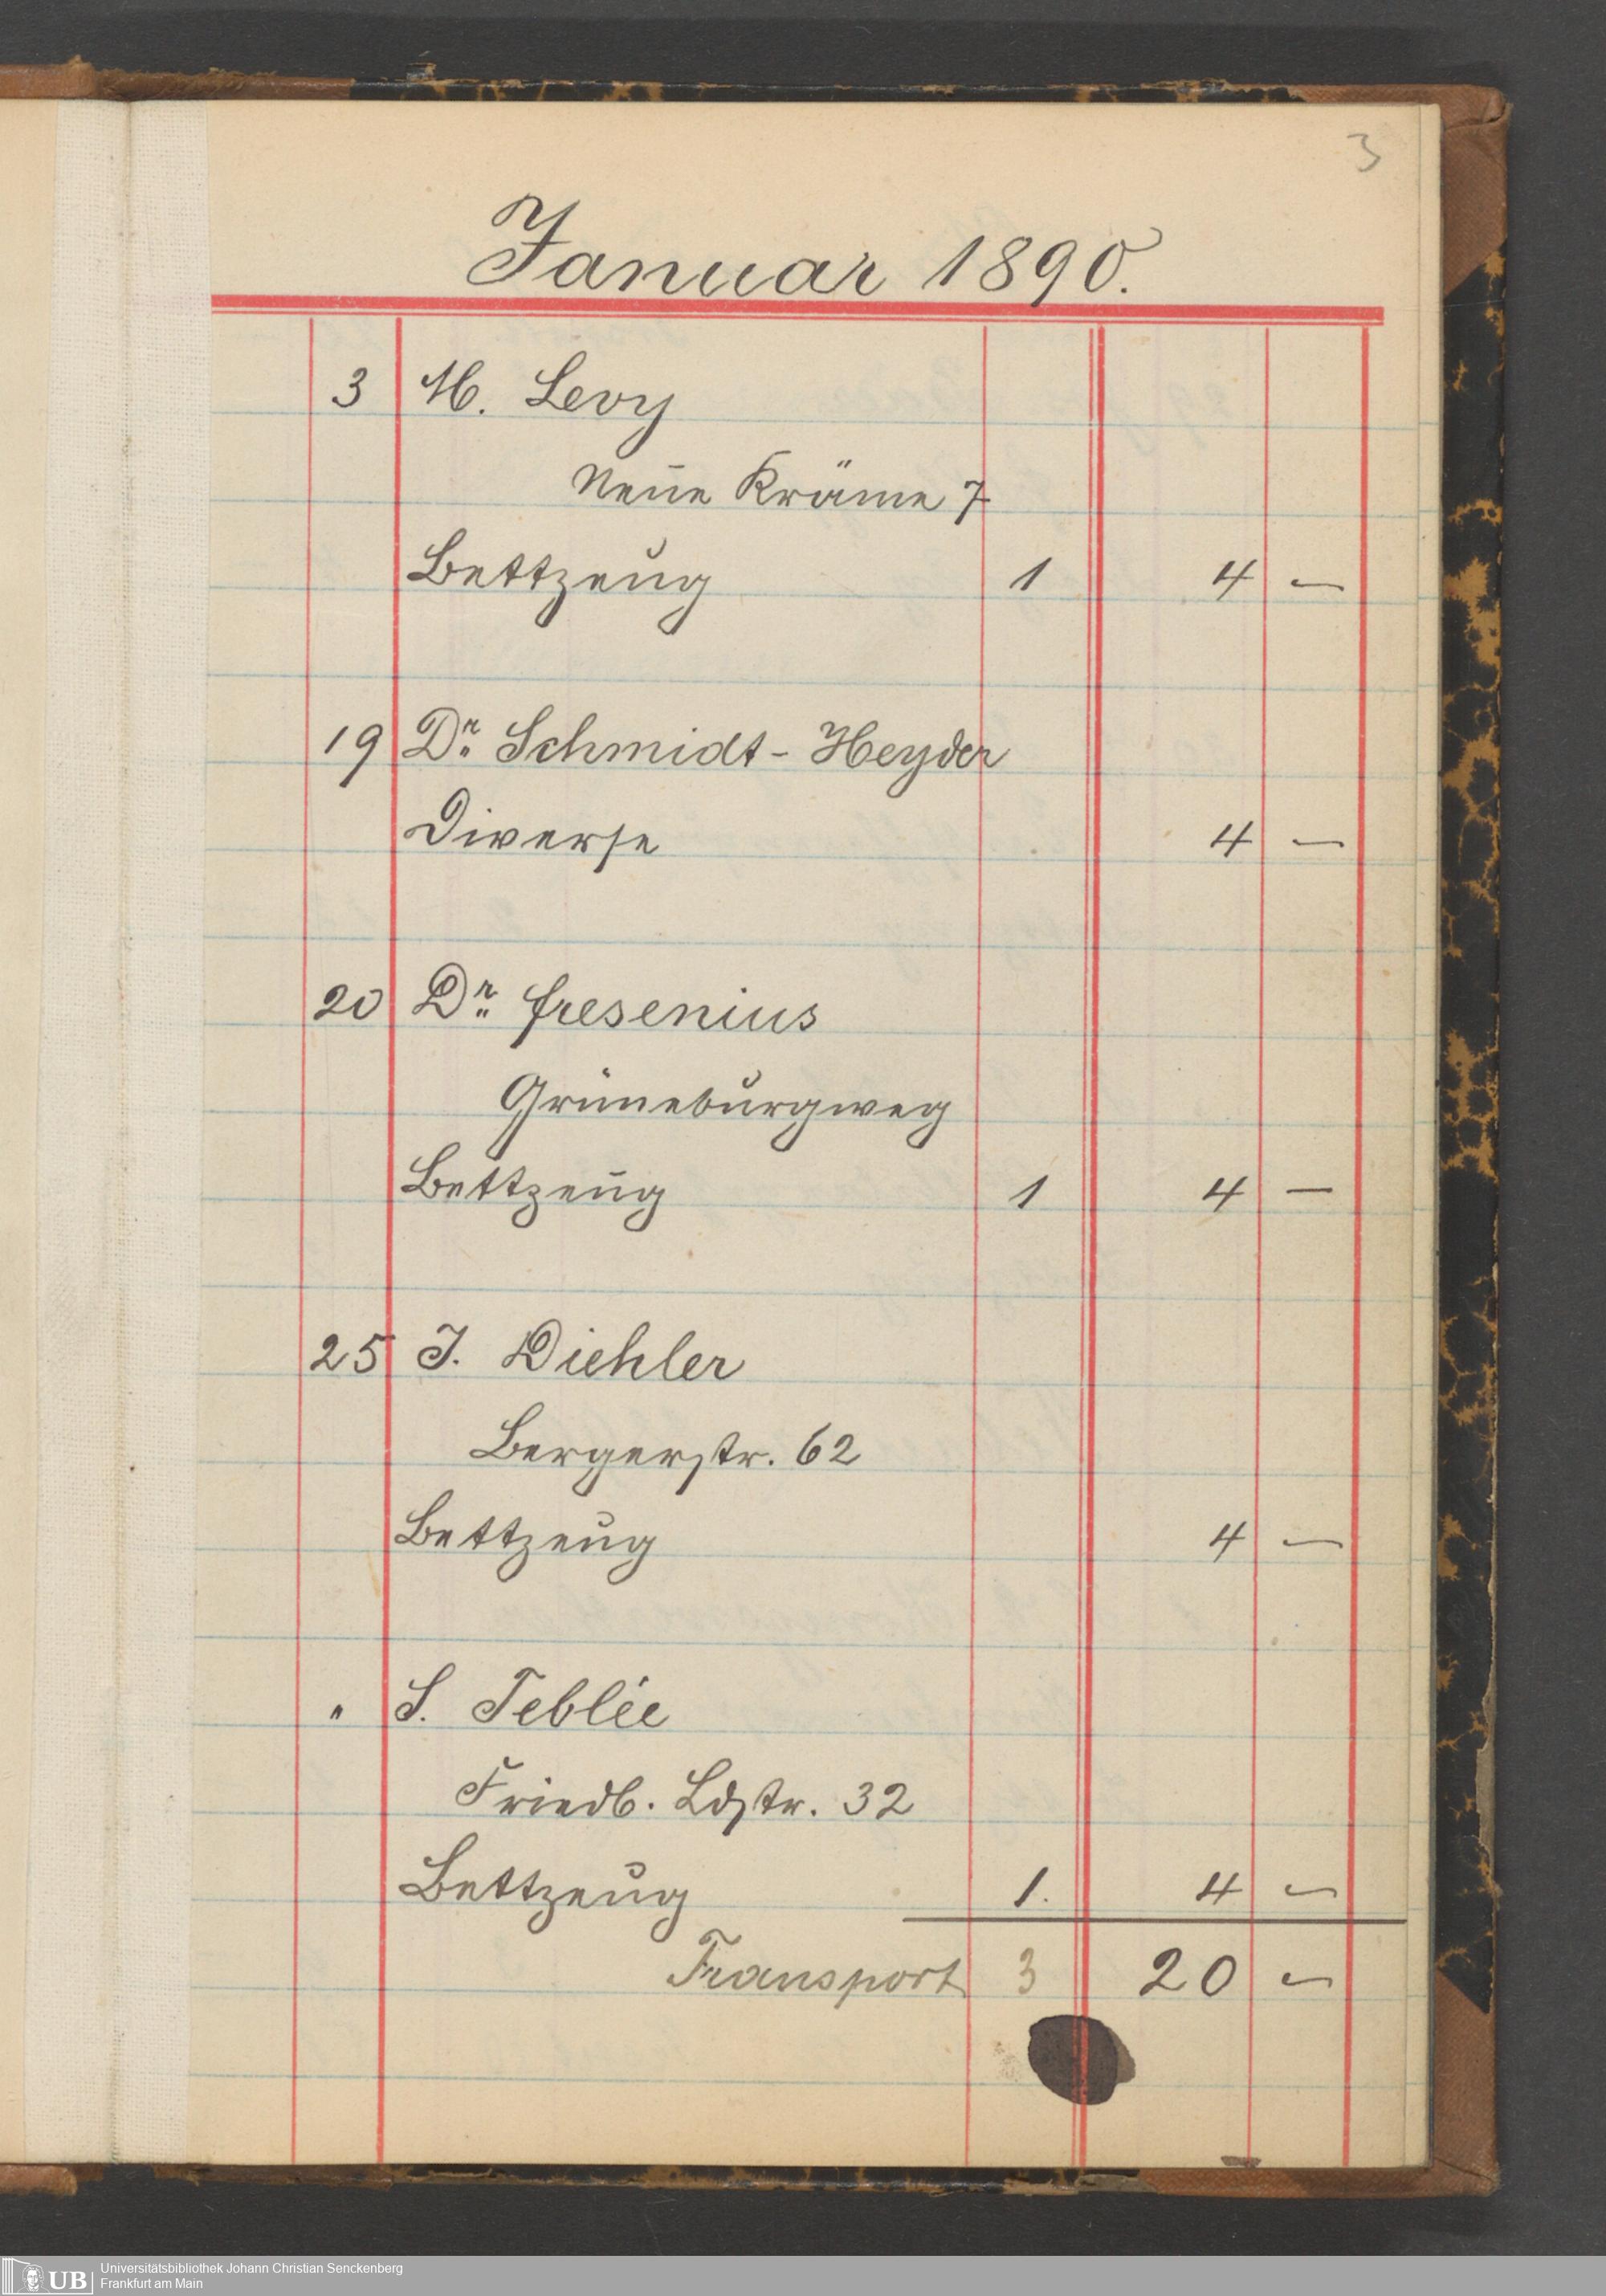 3
Januar 1890.
3 M. Levy
Neue Kräme 7
Bettzeug 1 4 —
19 Dr. Schmidt-Heyder
Diverse 4 —
20 Dr. Fresenius
Grüneburgweg
Bettzeug 1 4 —
25 J. Diehler
Bergerstr. 62
Bettzeug 4 —
" S. Teblée
Friedb. Ldstr. 32
Bettzeug 1. 4 —
Transport 3 20 —
UB Universitätsbibliothek Johann Christian Senckenberg
Frankfurt am Main